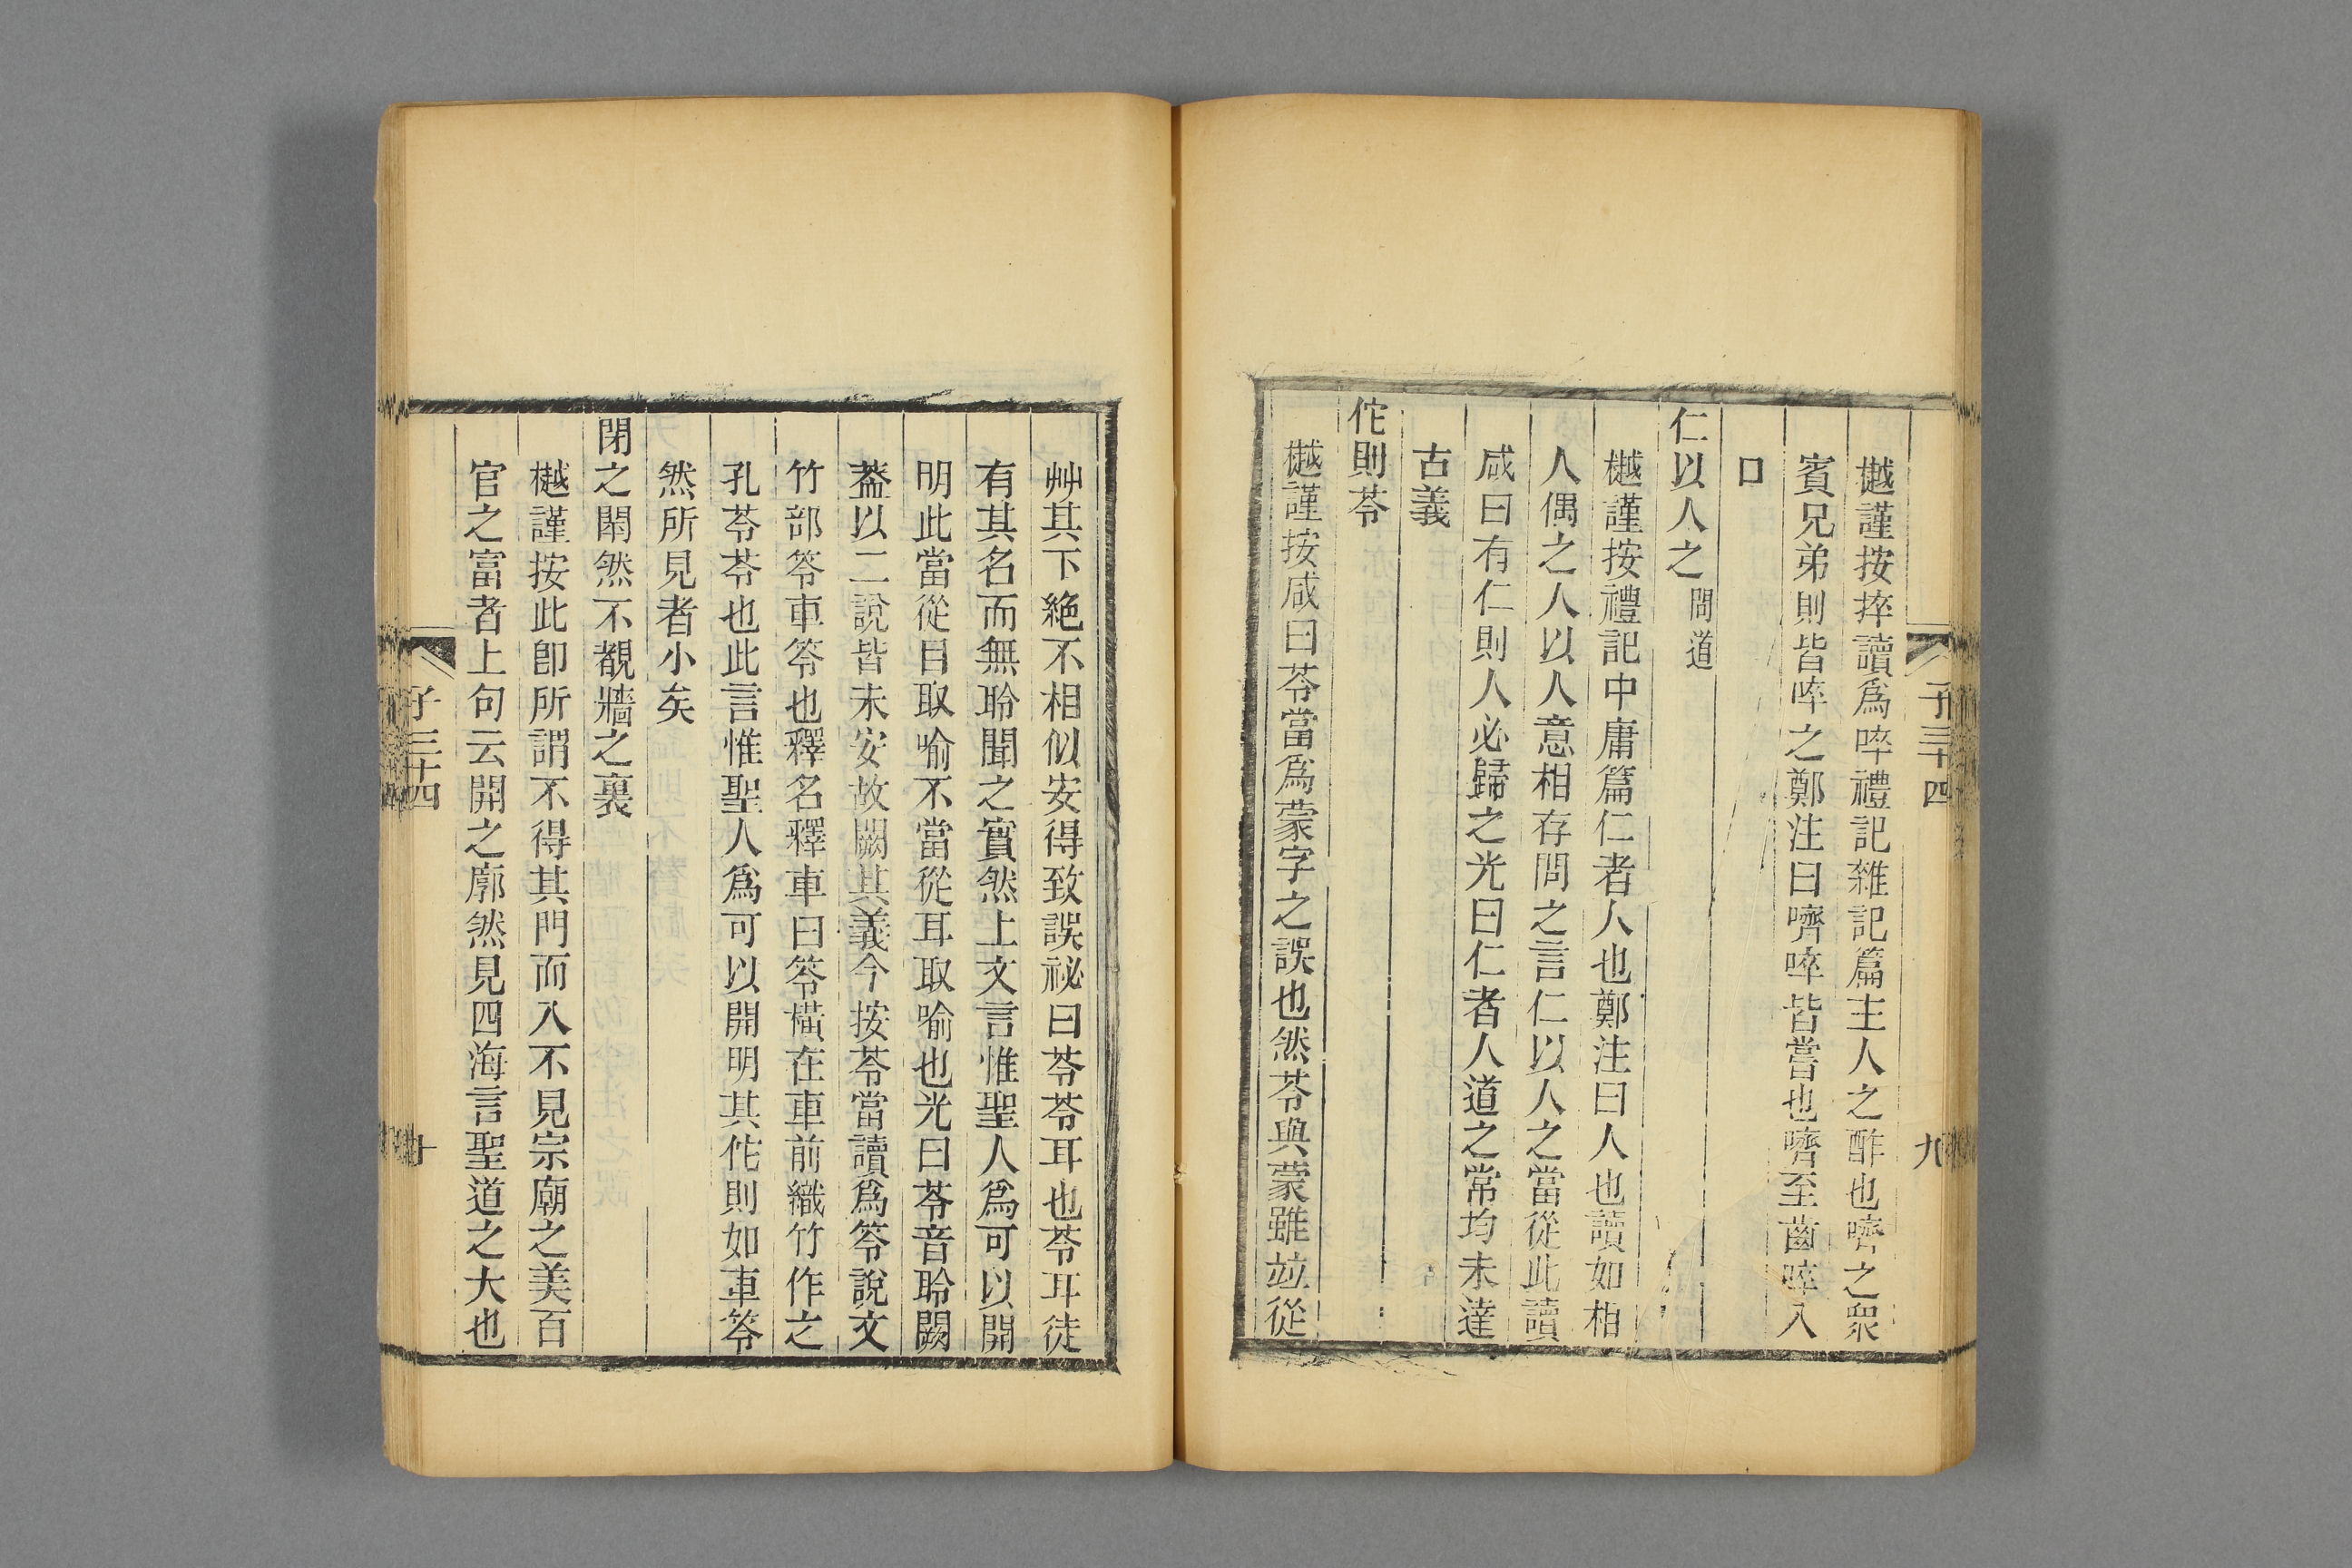 樾謹按捽讀爲啐禮記雜記篇主人之酢也嚌之衆
賓兄弟則皆啐之鄭注曰嚌啐皆嘗也嚌至齒啐入
口
仁以人之 問道
樾謹按禮記中庸篇仁者人也鄭注曰人也讀如相
人偶之人以人意相存問之言仁以人之當從此讀
咸曰有仁則人必歸之光曰仁者人道之常均未達
古義
佗則苓
樾謹按咸曰苓當爲蒙字之誤也然苓與蒙雖竝從
子三十四
九
艸其下絶不相似安得致誤祕曰苓苓耳也苓耳徒
有其名而無聆聞之實然上文言惟聖人爲可以開
明此當從目取喻不當從耳取喻也光曰苓音聆闕
葢以二說皆未安故闕其義今按苓當讀爲笭說文
竹部笭車笭也釋名釋車曰笭橫在車前織竹作之
孔苓苓也此言惟聖人爲可以開明其佗則如車笭
然所見者小矣
閉之閛然不覩牆之裏
樾謹按此卽所謂不得其門而入不見宗廟之美百
官之富者上句云開之廓然見四海言聖道之大也
子三十四
十